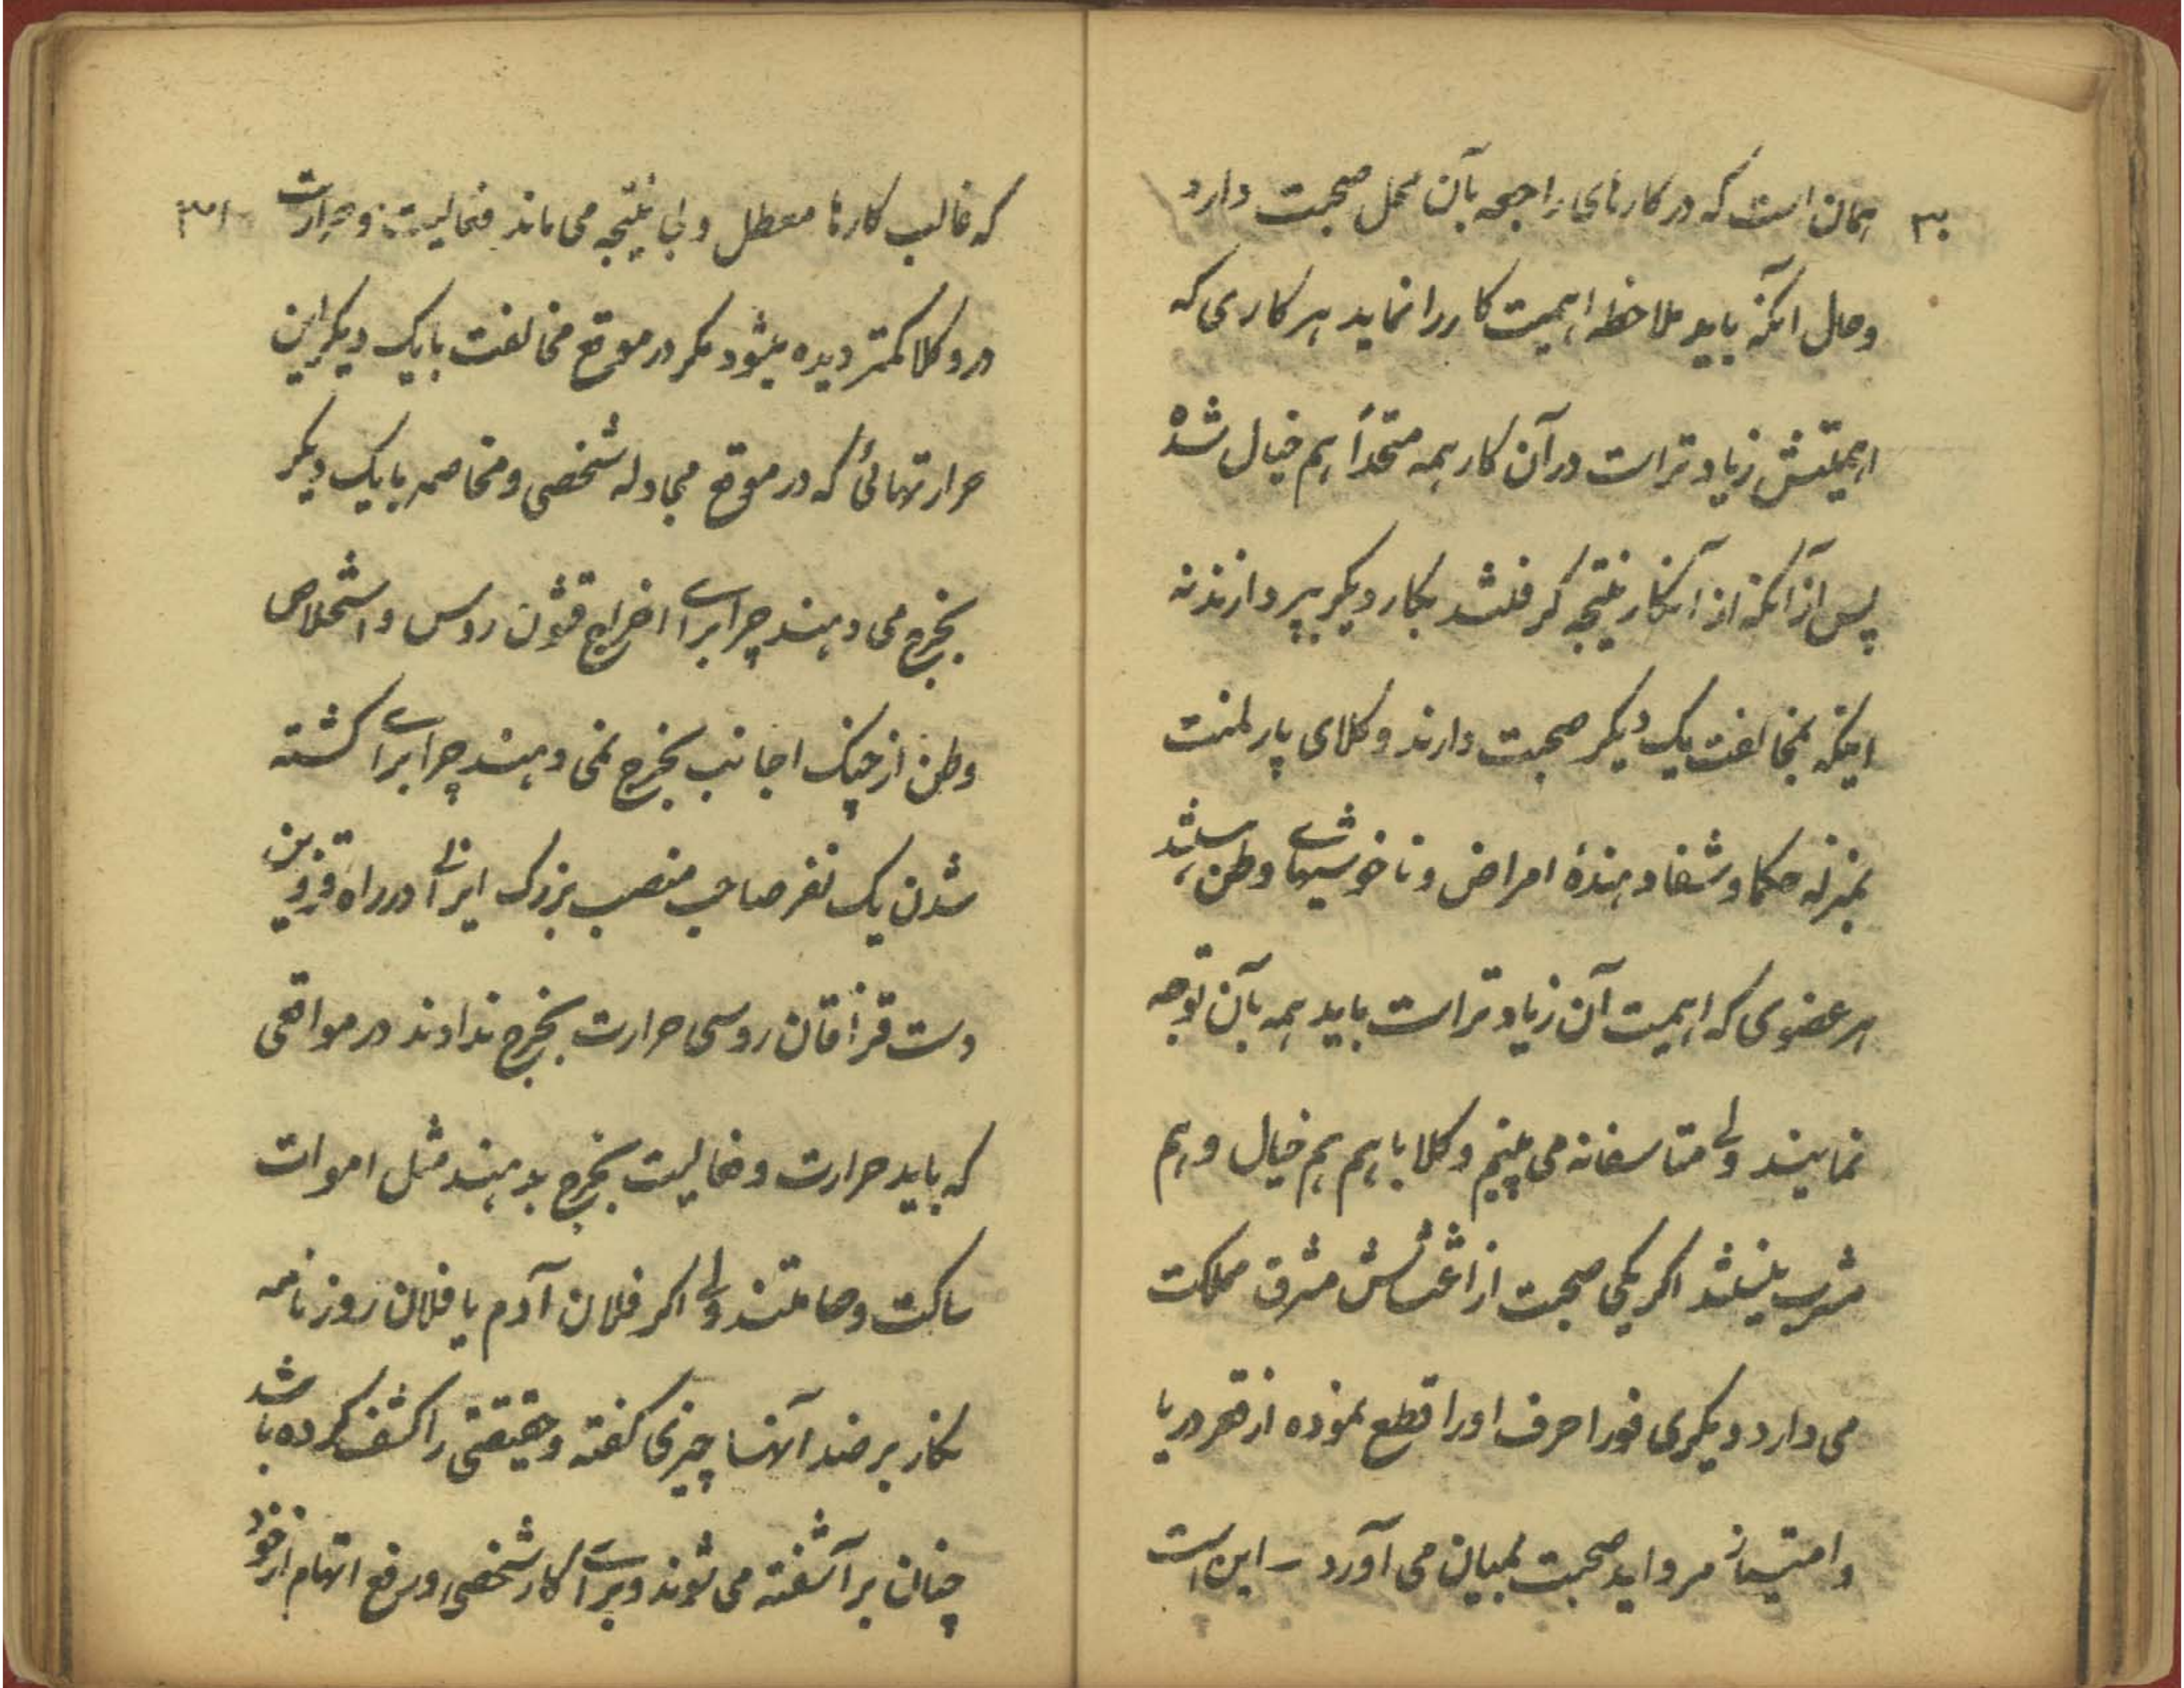 ۳۰
همان است که در کارهای راجعه بآن محل صحبت دارد
وحال آنکه باید ملاحظه اهمیت کار را نماید هر کاری که
اهمیتش زیادتر است در آن کار همه متحداً هم خیال شده
پس از آنکه از آنکار نتیجه گرفتند بکار دیگر بپردازند نه
اینکه بمخالفت یک دیگر صحبت دارند وکلای پارلمنت
بمنزله حکما و شفا دهندهٔ امراض و ناخوشیهای وطن هستند
هر عضوی که اهمیت آن زیادتر است باید همه بآن توجه
نمایند ولی متاسفانه می بینیم وکلا با هم هم خیال و هم
مشرب نیستند اگر یکی صحبت از اغتشاش مشرق مملکت
می دارد دیگری فورا حرف اورا قطع نموده از قعر دریا
و امتیاز مروارید صحبت بمیان می آورد – این است
۳۱
که غالب کارها معطل و بی نتیجه می ماند فعالیت و حرارت
در وکلا کمتر دیده میشود مگر در موقع مخالفت با یک دیگر این
حرارتهائی که در موقع مجادله شخصی و مخاصمه با یک دیگر
بخرج می دهند چرا برای اخراج قشون روس و استخلاص
وطن از چنگ اجانب بخرج نمی دهند چرا برای کشته
شدن یک نفر صاحب منصب بزرگ ایرانی در راه قزوین
دست قزاقان روسی حرارت بخرج ندادند در مواقعی
که باید حرارت و فعالیت بخرج بدهند مثل اموات
ساکت و صامتند ولی اگر فلان آدم یا فلان روزنامه
نگار بر ضد آنها چیزی گفته و حقیقتی را کشف کرده باشد
چنان بر آشفته می شوند و برای کار شخصی و رفع اتهام از خود